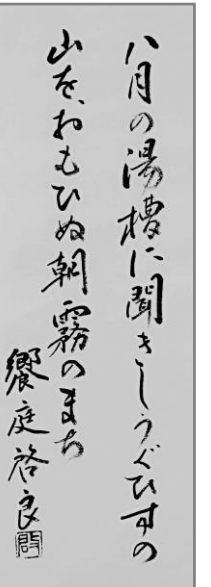 八月の湯槽に聞きしうぐひすの
山を、おもひぬ朝霧のまち
饗庭啓良